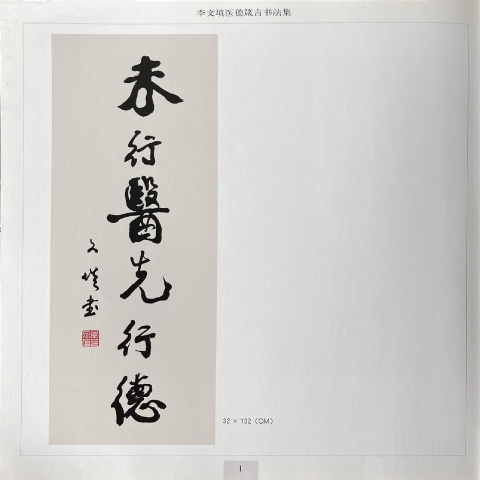 李文填医德箴言书法集
未行醫先行德
文填書
32 × 132 (CM)
1